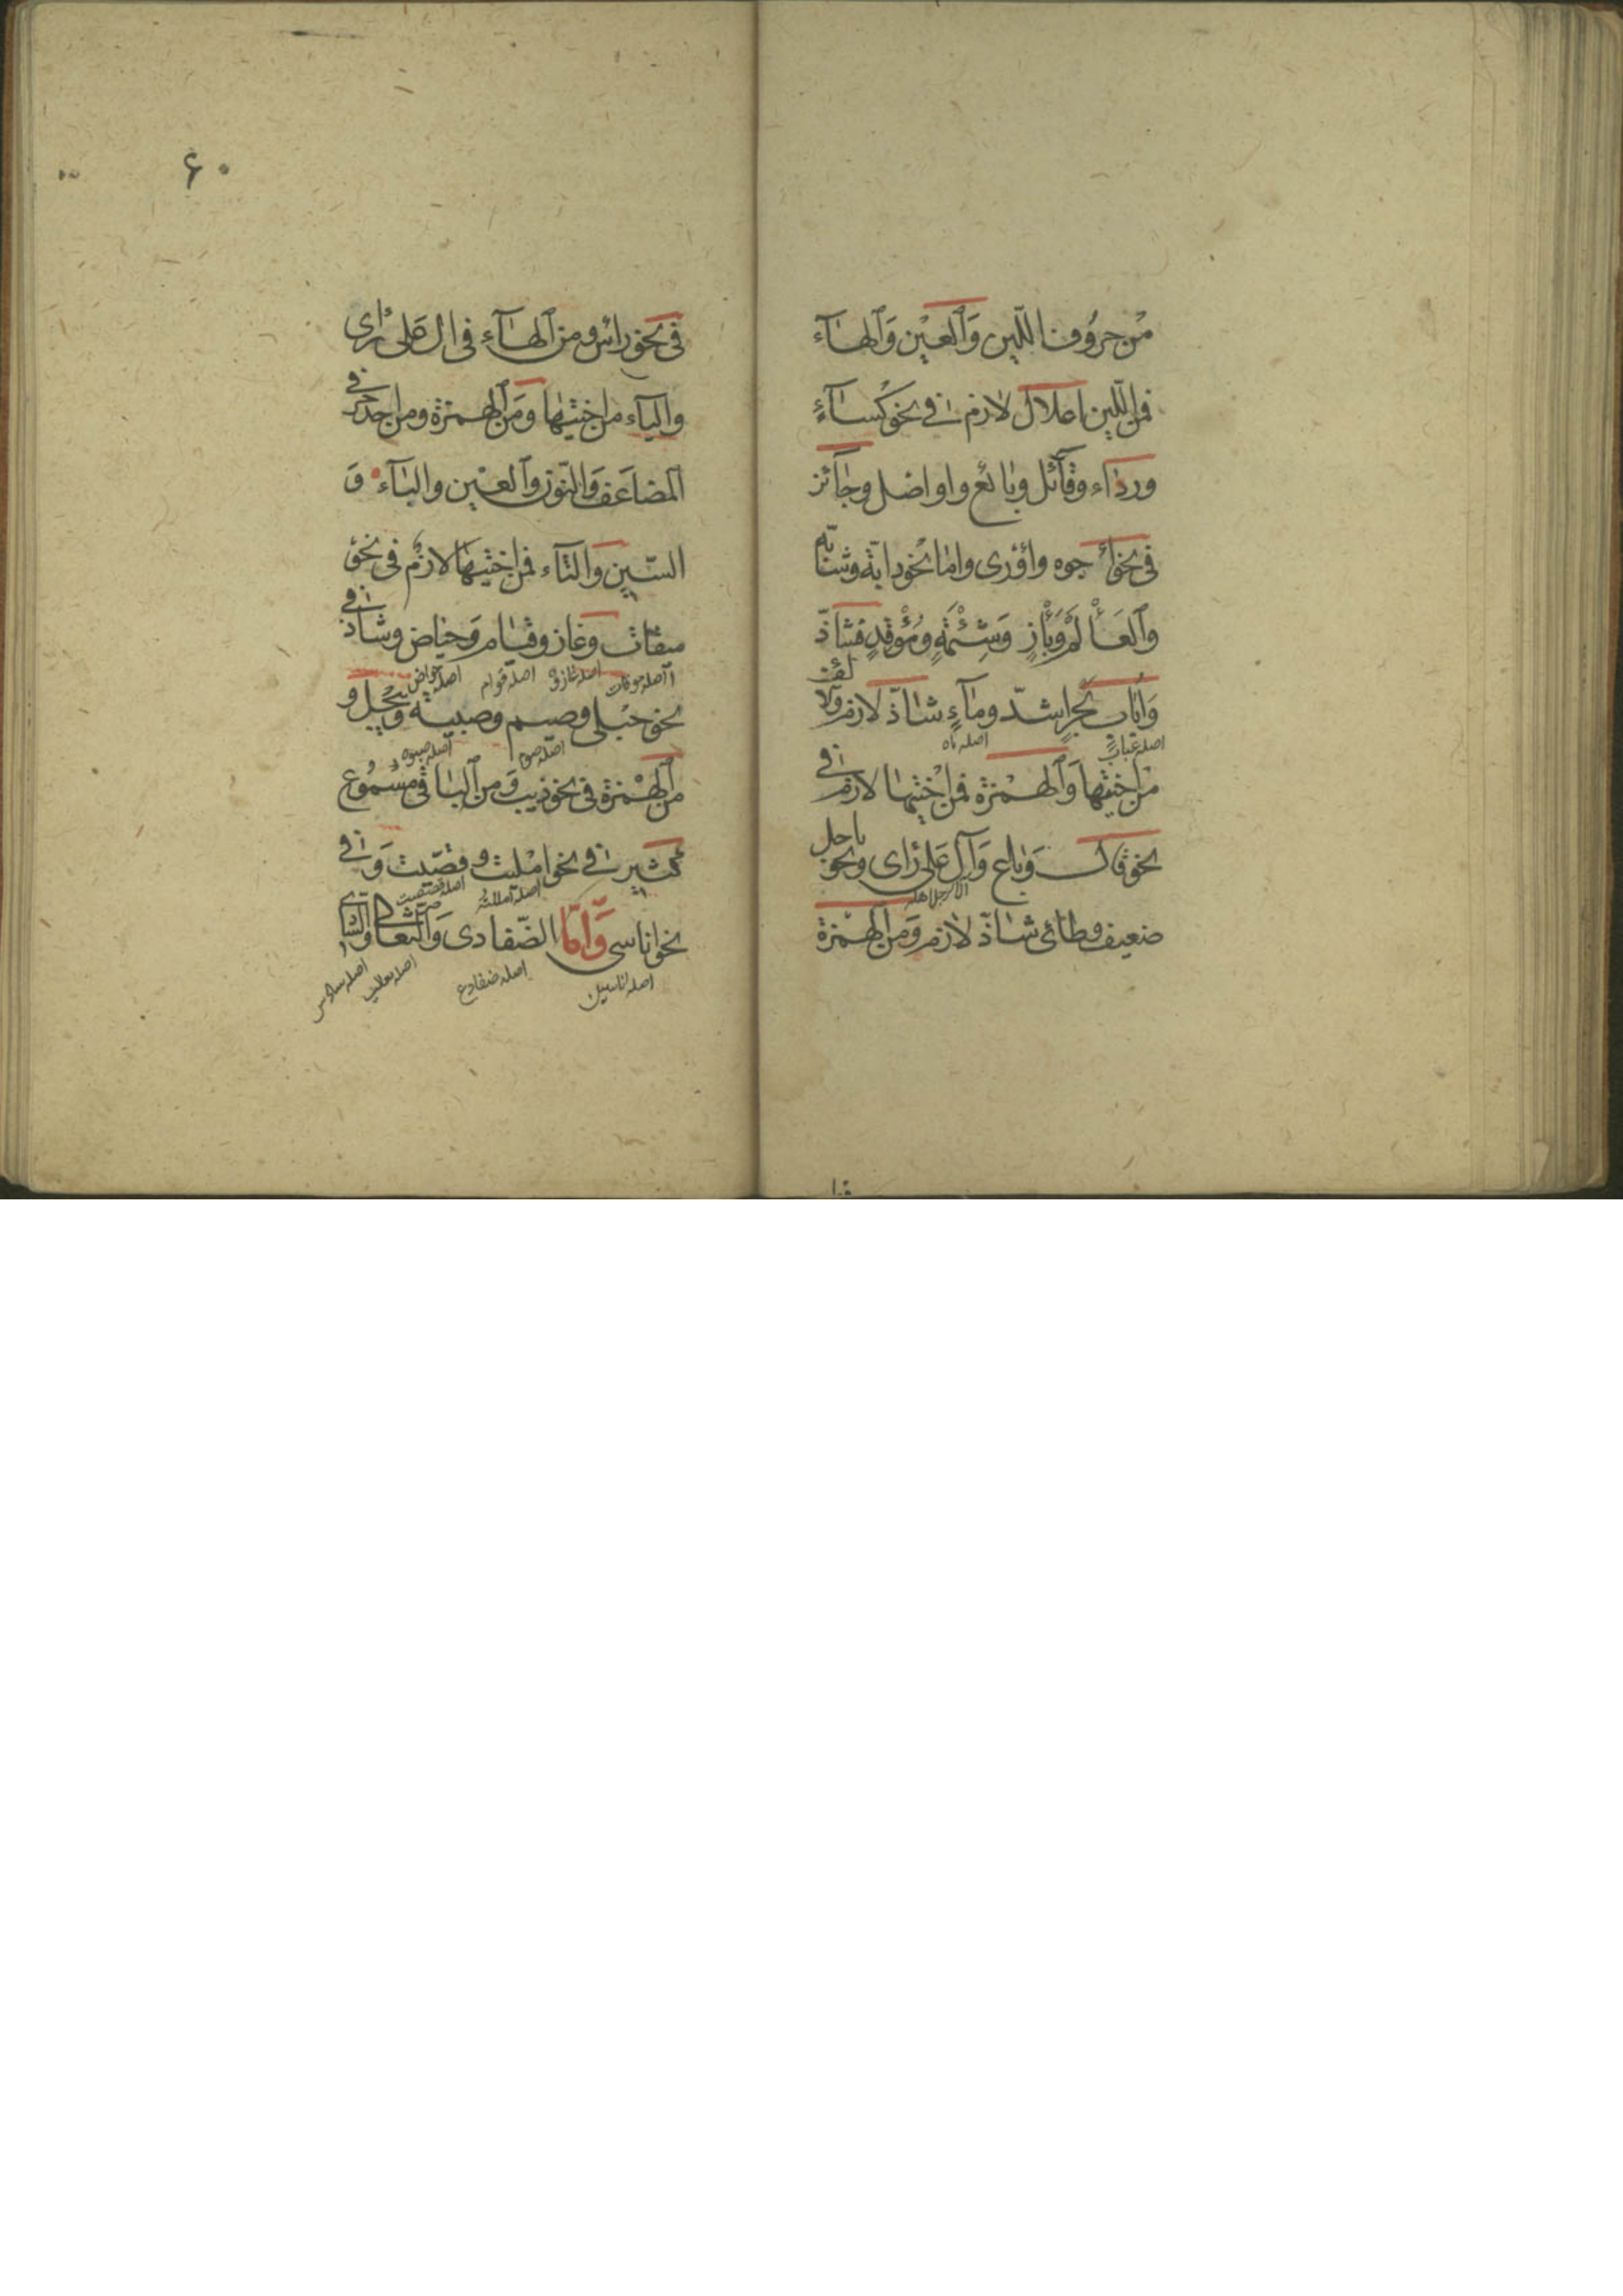 من حروف اللين والعين والهاء
فمن اللين اعلال لازم في نحو كساء
ورداء وقائل وبائع واواصل وجائز
في نحو أجوه وأؤرى واما نحو دابة وشابة
والعألم وبأز وشئمة ومؤقد فشاذ
واباب بحر اشذ وماء شاذ لازم والالف
اصله عباب
اصله ماه
من اختيها والهمزة فمن اختيها لازم في
نحو قال وباع وآل على راى ونحو ياجل
ضعيف وطائى شاذ لازم ومن الهمزة
۶۰
في نحو راس ومن الهاء في ال على راى
والياء من اختيها ومن الهمزة ومن احد حرفي
المضاعف والنون والعين والباء و
السين والثاء فمن اختيها لازم في نحو
ميقات وغاز وقيام وحياض وشاذ في
اصله موقات
اصله غازو
اصله قوام
اصله حواض
نحو حبلى وصيم وصبية وييجل و
اصله صوم
اصله صبوة
من الهمزة في نحو ذيب ومن الباقي مسموع
كثير في نحو امليت وقصيت وفي
اصله امللت
اصله قصصت
نحو اناسى واما الضفادى والثعالى والسادى
اصله اناسين
اصله ضفادع
اصله ثعالب
اصله سادس